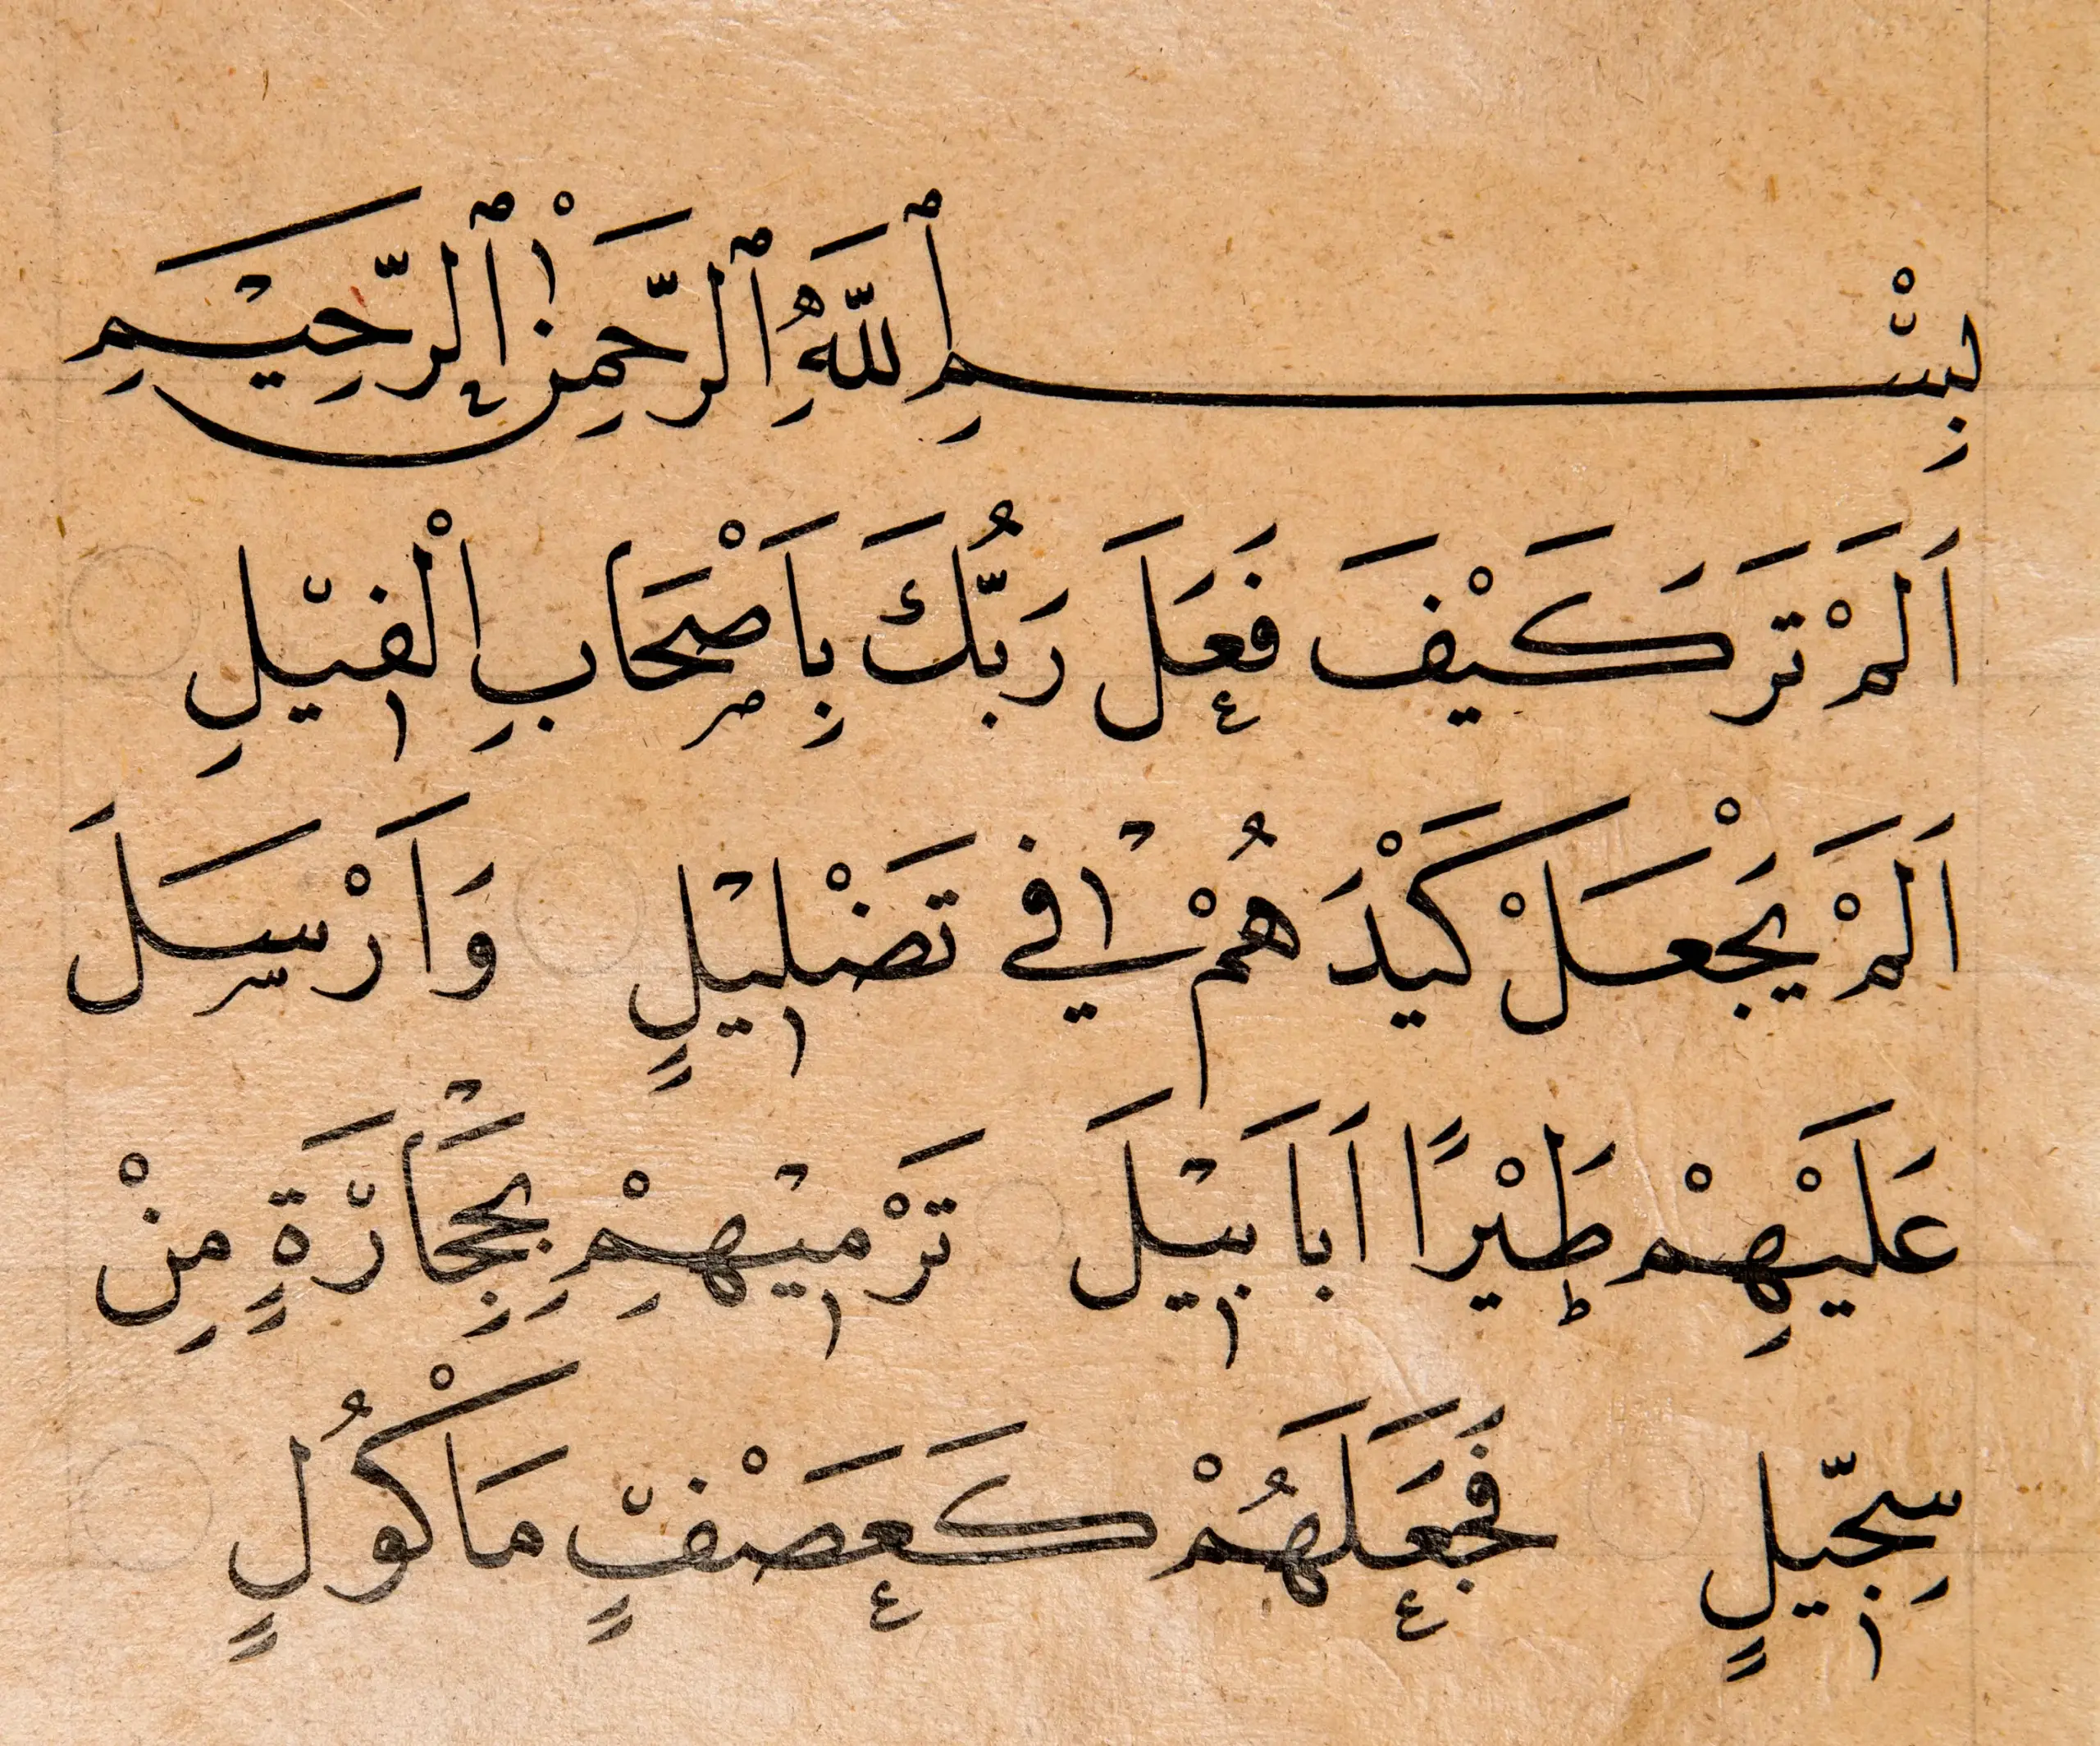 بِسْمِ ٱللَّهِ ٱلرَّحْمَنِ ٱلرَّحِيمِ
اَلَمْ تَرَ كَيْفَ فَعَلَ رَبُّكَ بِاَصْحَابِ الْفِيلِ
اَلَمْ يَجْعَلْ كَيْدَهُمْ فِي تَضْلِيلٍ وَاَرْسَلَ
عَلَيْهِمْ طَيْرًا اَبَابِيلَ تَرْمِيهِمْ بِحِجَارَةٍ مِنْ
سِجِّيلٍ فَجَعَلَهُمْ كَعَصْفٍ مَاْكُولٍ